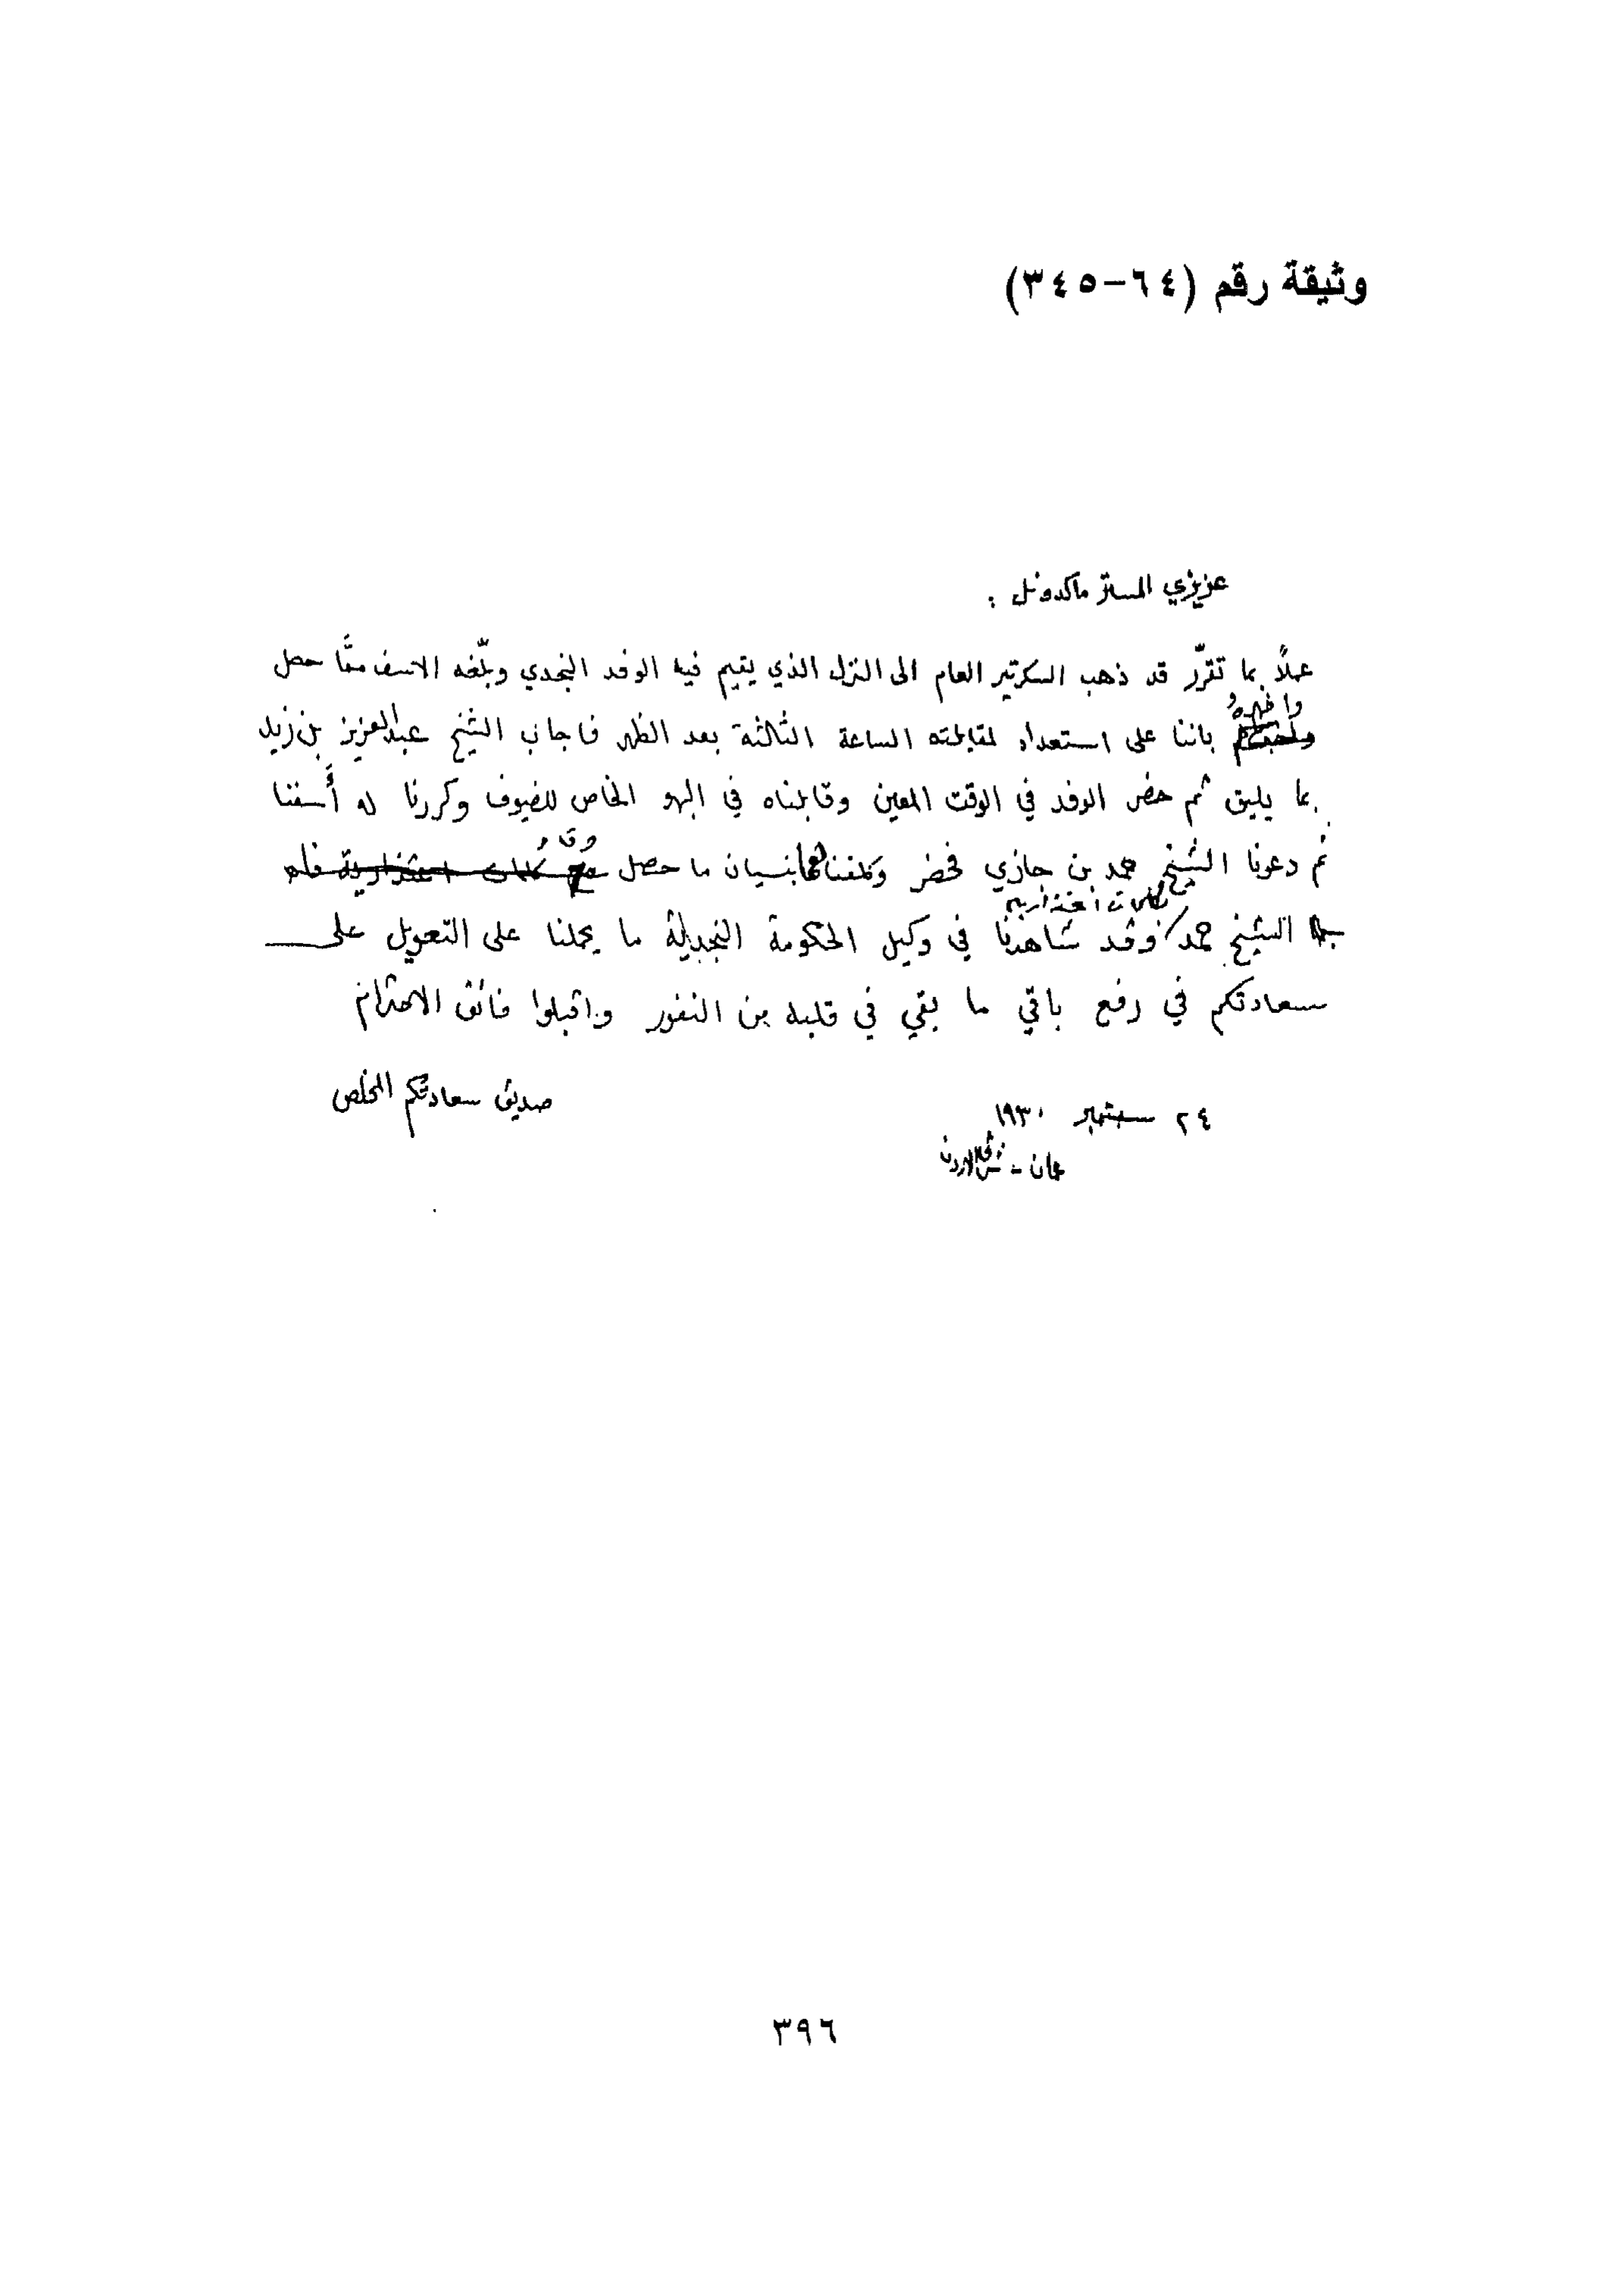 وثيقة رقم (٦٤-٣٤٥)
عزيزي المستر ماكدونل :
عملاً بما تقرّر قد ذهب السكرتير العام الى النزل الذي يقيم فيه الوفد النجدي وبلّغه الاسف ممّا حصل
واخبره
باننا على استعداد لمقابلته الساعة الثالثة بعد الظهر فاجاب الشيخ عبد العزيز بن زيد
بما يليق ثم حضر الوفد في الوقت المعين وقابلناه في البهو الخاص للضيوف وكررنا له أسفنا
ثم دعونا الشيخ حمد بن جازي فحضر وكلفناهما بنسيان ما حصل مع كلمات اعتذارية فاه
بها الشيخ حمد وقد شاهدنا في وكيل الحكومة النجدية ما يحملنا على التعويل على
سعادتكم في رفع باقي ما بقي في قلبه من النفور واقبلوا فائق الاحترام
صديق سعادتكم المخلص
٢٤ سبتمبر ١٩٣٠
عمان - شرق الاردن
٣٩٦